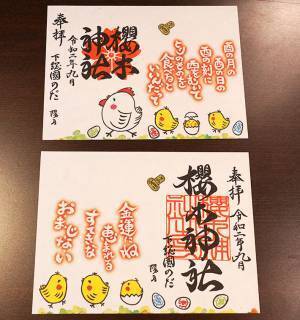 奉拝
令和二年九月
櫻木
神社
下総國のだ
酉の月の
酉の日の
酉の刻に
酉をむいて
とりのものを
食べると
いいんだって
奉拝
令和二年九月
櫻木神社
下総國のだ
金運にね
恵まれる
すてきな
おまじない